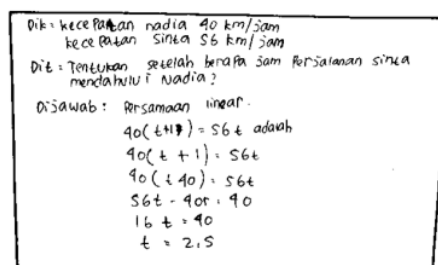 Dik : kecepatan nadia 40 km/jam
kecepatan sinta 56 km/jam
Dit : Tentukan setelah berapa jam Perjalanan sinta
mendahului Nadia ?
Dijawab : Persamaan linear .
40(t+1) = 56t adalah
40(t + 1) = 56t
40(t 40) = 56t
56t - 40t = 40
16 t = 40
t = 2,5